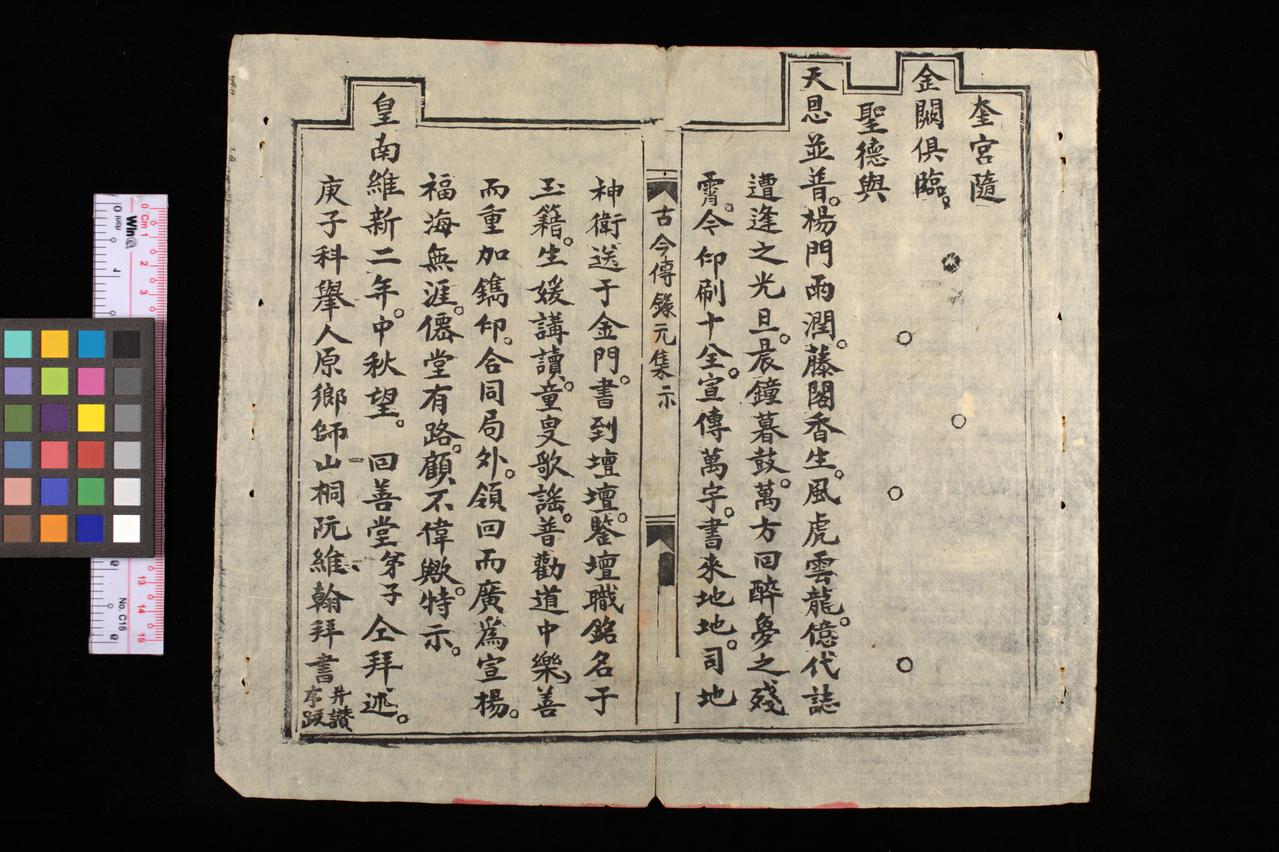 奎宮隨
金闕俱臨。
聖德與
天恩並普。楊門雨潤。藤閣香生。風虎雲龍。億代誌
遭逢之光旦。晨鐘暮鼓。萬方回醉夢之殘
霄。今印刷十全。宣傳萬字。書來地地。司地
古今傳錄元集示
神衛送于金門。書到壇壇。鑒壇職銘名于
玉籍。生媛講讀。童叟歌謠。普勸道中樂。善
而重加鐫印。合同局外。領回而廣為宣楊。
福海無涯。僊堂有路。顧不偉歟。特示。
皇南維新二年。中秋望。回善堂弟子仝拜述。
庚子科舉人原鄉師山桐阮維翰拜書
并讚
序跋
Winq
0 Cm 1 2 3 13 14 15
No. C15